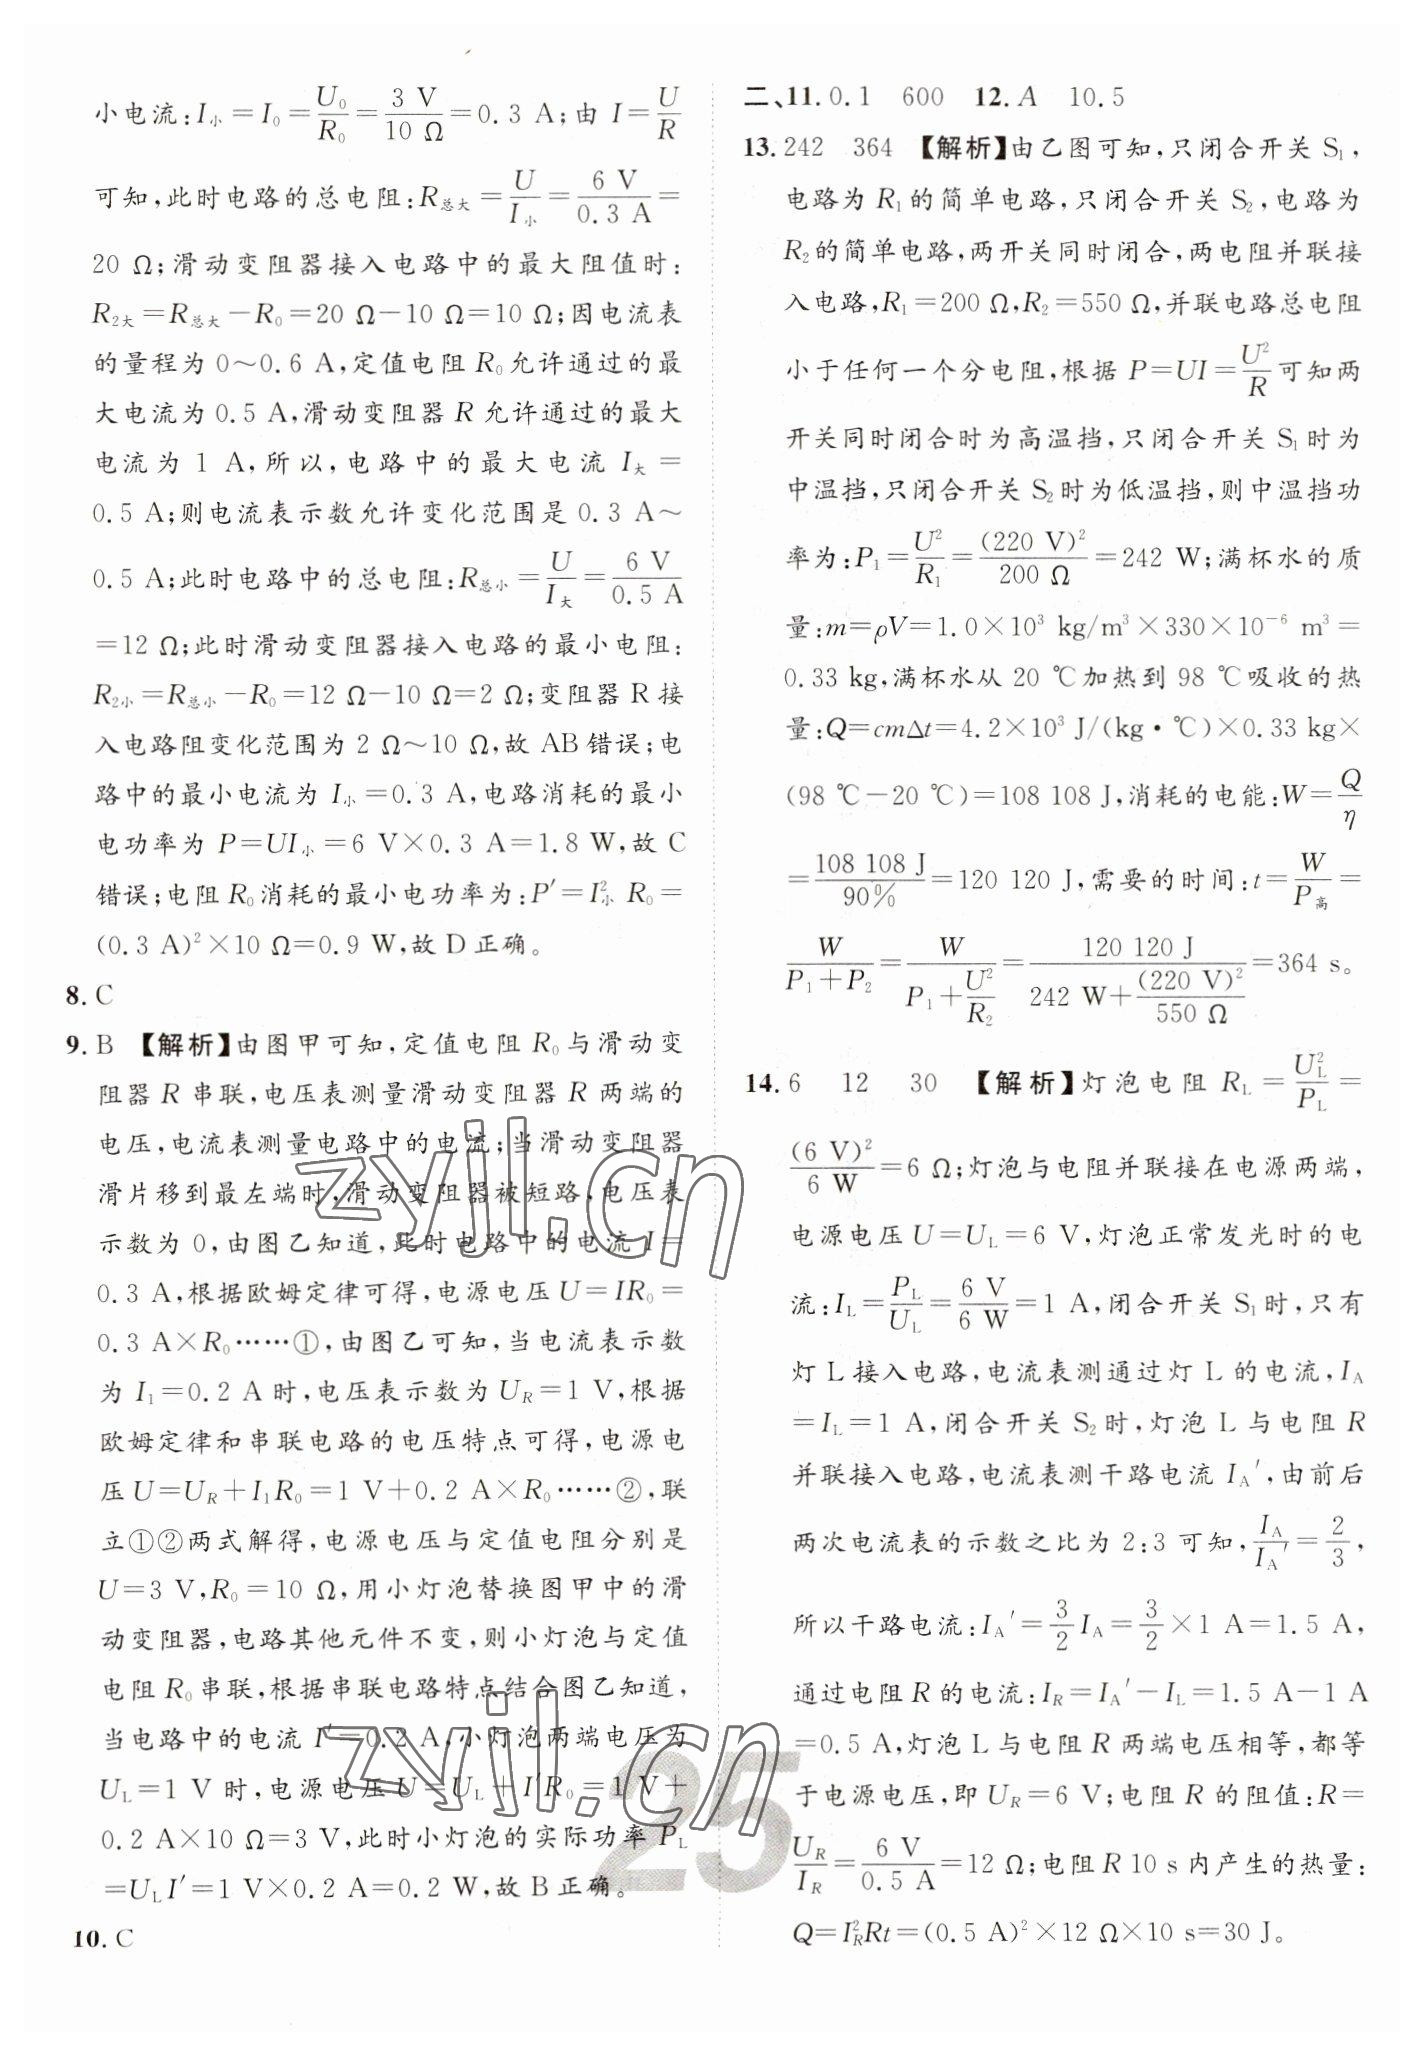 小电流:I小=I₀=U₀/R₀=3 V/10 Ω=0.3 A;由 I=U/R
可知,此时电路的总电阻:R总大=U/I小=6 V/0.3 A=
20 Ω;滑动变阻器接入电路中的最大阻值时:
R₂大=R总大-R₀=20 Ω-10 Ω=10 Ω;因电流表
的量程为 0~0.6 A,定值电阻 R₀允许通过的最
大电流为 0.5 A,滑动变阻器 R 允许通过的最大
电流为 1 A,所以,电路中的最大电流 I大=
0.5 A;则电流表示数允许变化范围是 0.3 A~
0.5 A;此时电路中的总电阻:R总小=U/I大=6 V/0.5 A
=12 Ω;此时滑动变阻器接入电路的最小电阻:
R₂小=R总小-R₀=12 Ω-10 Ω=2 Ω;变阻器 R 接
入电路阻变化范围为 2 Ω~10 Ω,故 AB 错误;电
路中的最小电流为 I小=0.3 A,电路消耗的最小
电功率为 P=UI小=6 V×0.3 A=1.8 W,故 C
错误;电阻 R₀消耗的最小电功率为:P′=I²小 R₀=
(0.3 A)²×10 Ω=0.9 W,故 D 正确。
8. C
9. B 【解析】由图甲可知,定值电阻 R₀与滑动变
阻器 R 串联,电压表测量滑动变阻器 R 两端的
电压,电流表测量电路中的电流;当滑动变阻器
滑片移到最左端时,滑动变阻器被短路,电压表
示数为 0,由图乙知道,此时电路中的电流 I=
0.3 A,根据欧姆定律可得,电源电压 U=IR₀=
0.3 A×R₀……①,由图乙可知,当电流表示数
为 I₁=0.2 A 时,电压表示数为 U_R=1 V,根据
欧姆定律和串联电路的电压特点可得,电源电
压 U=U_R+I₁R₀=1 V+0.2 A×R₀……②,联
立①②两式解得,电源电压与定值电阻分别是
U=3 V,R₀=10 Ω,用小灯泡替换图甲中的滑
动变阻器,电路其他元件不变,则小灯泡与定值
电阻 R₀串联,根据串联电路特点结合图乙知道,
当电路中的电流 I′=0.2 A,小灯泡两端电压为
U_L=1 V 时,电源电压 U=U_L+I′R₀=1 V+
0.2 A×10 Ω=3 V,此时小灯泡的实际功率 P_L
=U_L I′=1 V×0.2 A=0.2 W,故 B 正确。
10. C
二、11. 0.1 600 12. A 10.5
13. 242 364 【解析】由乙图可知,只闭合开关 S₁,
电路为 R₁的简单电路,只闭合开关 S₂,电路为
R₂的简单电路,两开关同时闭合,两电阻并联接
入电路,R₁=200 Ω,R₂=550 Ω,并联电路总电阻
小于任何一个分电阻,根据 P=UI=U²/R可知两
开关同时闭合时为高温挡,只闭合开关 S₁时为
中温挡,只闭合开关 S₂时为低温挡,则中温挡功
率为:P₁=U²/R₁=(220 V)²/200 Ω=242 W;满杯水的质
量:m=ρV=1.0×10³ kg/m³×330×10⁻⁶ m³=
0.33 kg,满杯水从 20 ℃加热到 98 ℃吸收的热
量:Q=cmΔt=4.2×10³ J/(kg·℃)×0.33 kg×
(98 ℃-20 ℃)=108 108 J,消耗的电能:W=Q/η
=108 108 J/90%=120 120 J,需要的时间:t=W/P高=
W/(P₁+P₂)=W/(P₁+U²/R₂)=120 120 J/(242 W+(220 V)²/550 Ω)=364 s。
14. 6 12 30 【解析】灯泡电阻 R_L=U_L²/P_L=
(6 V)²/6 W=6 Ω;灯泡与电阻并联接在电源两端,
电源电压 U=U_L=6 V,灯泡正常发光时的电
流:I_L=P_L/U_L=6 V/6 W=1 A,闭合开关 S₁时,只有
灯 L 接入电路,电流表测通过灯 L 的电流,I_A
=I_L=1 A,闭合开关 S₂时,灯泡 L 与电阻 R
并联接入电路,电流表测干路电流 I_A′,由前后
两次电流表的示数之比为 2:3 可知,I_A/I_A′=2/3,
所以干路电流:I_A′=3/2 I_A=3/2×1 A=1.5 A,
通过电阻 R 的电流:I_R=I_A′-I_L=1.5 A-1 A
=0.5 A,灯泡 L 与电阻 R 两端电压相等,都等
于电源电压,即 U_R=6 V;电阻 R 的阻值:R=
U_R/I_R=6 V/0.5 A=12 Ω;电阻 R 10 s 内产生的热量:
Q=I_R²Rt=(0.5 A)²×12 Ω×10 s=30 J。
zyjl.cn
zyjl.cn
25